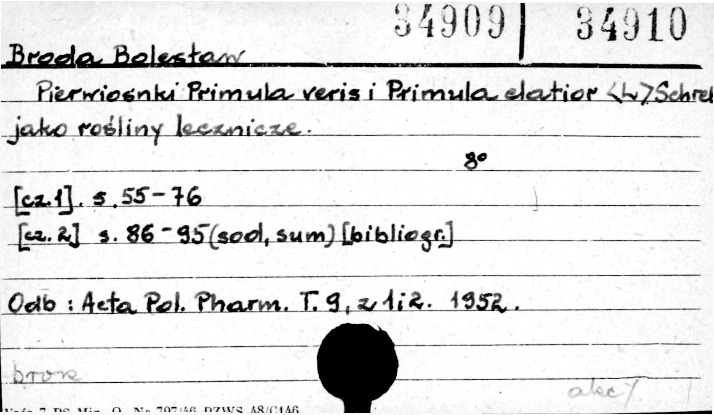 34909 34910
Broda Bolesław
Pierwiosnki Primula veris i Primula elatior <L> Schreb
jako rośliny lecznicze.
8°
[cz.1]. s.55-76
[cz.2] s. 86-95 (sod, sum) [bibliogr.]
Odb: Acta Pol. Pharm. T. 9, z 1i2. 1952.
brok
No 797/46 PZWS A8/C1A6